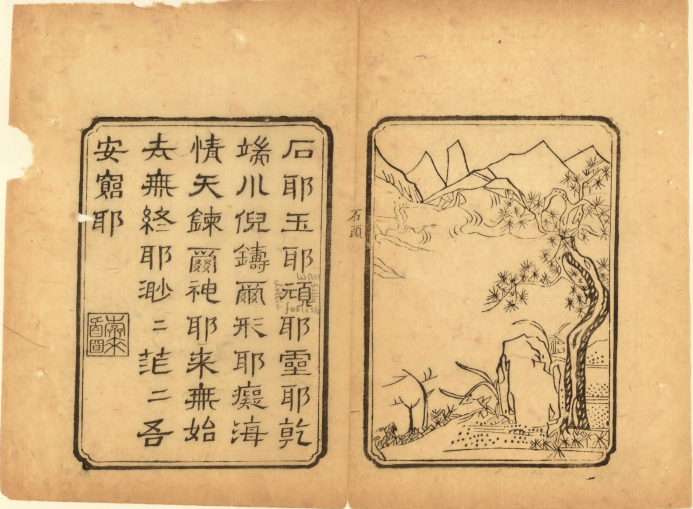 石頭
石耶玉耶頑耶靈耶乾
端巛倪鑄爾形耶癡海
情天鍊爾神耶来無始
去無終耶渺二茫二吾
安窮耶
Wan
foolish